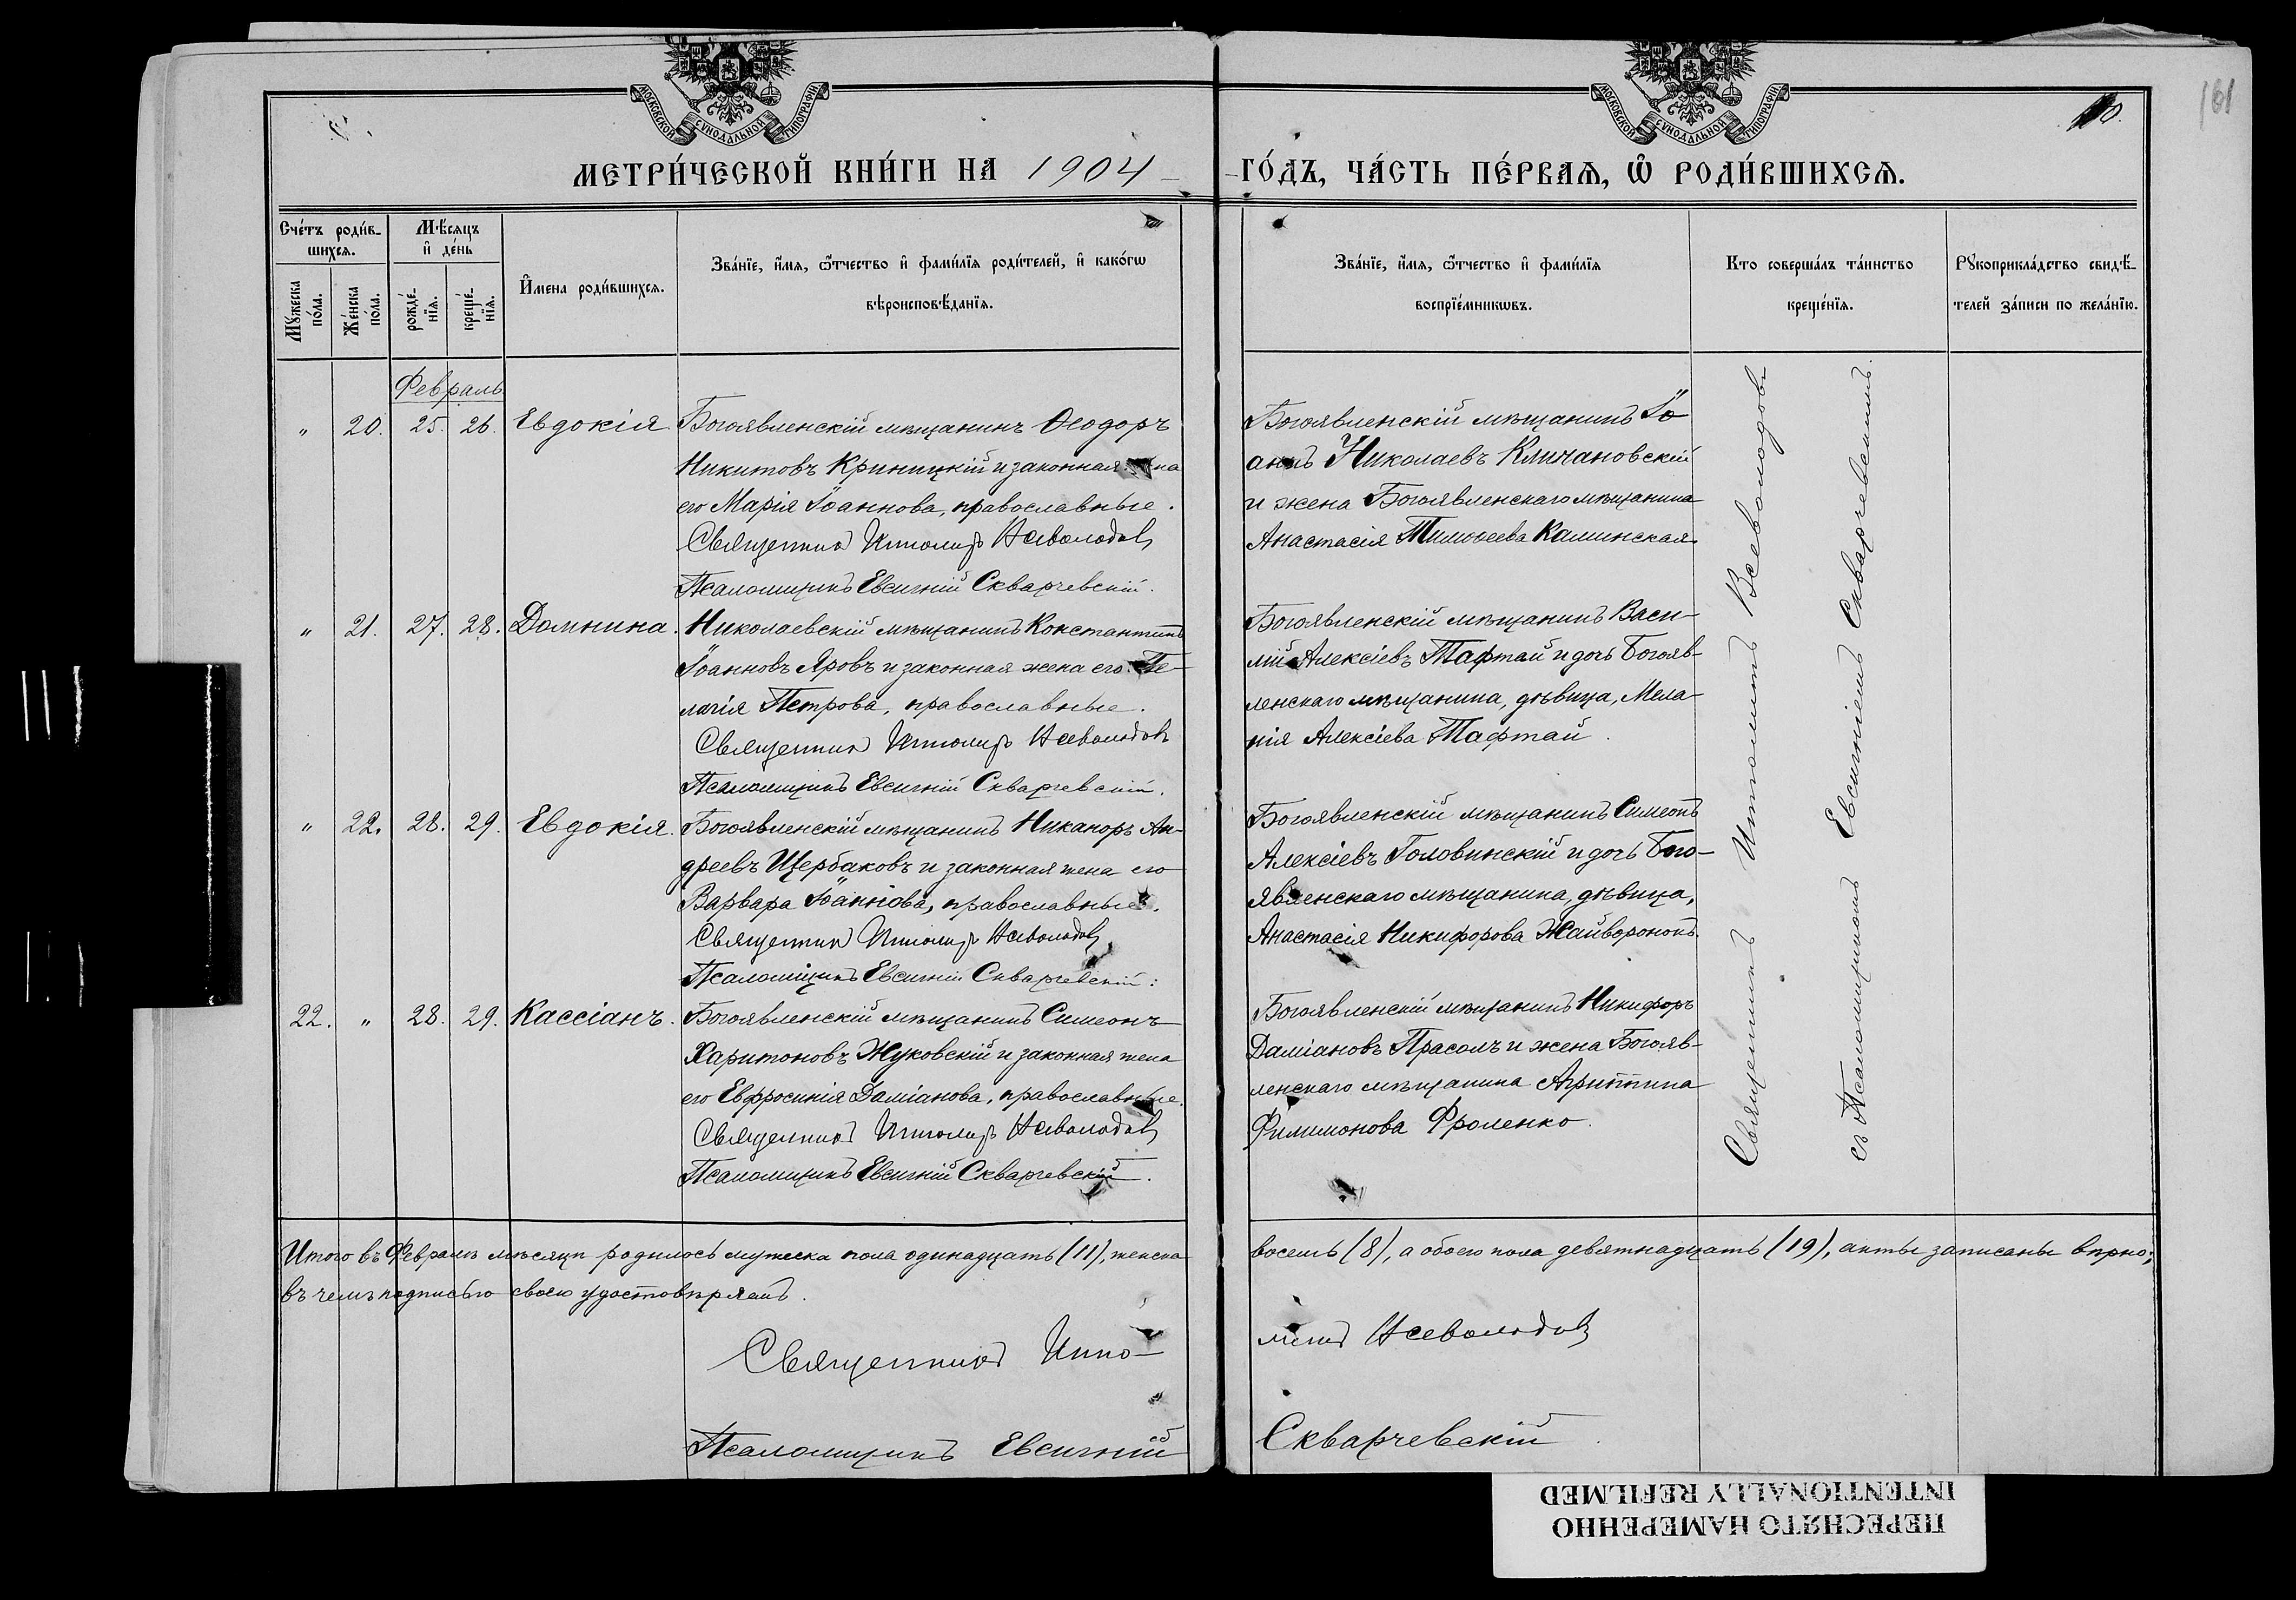 161
МОСКОВСКОЙ СѴНОДАЛЬНОЙ ТИПОГРАФІИ
МОСКОВСКОЙ СѴНОДАЛЬНОЙ ТИПОГРАФІИ
МЕТРИ́ЧЕСКОЙ КНИ́ГИ НА 1904 ГО́ДЪ, ЧА́СТЬ ПЕ́РВАѦ, Ѡ҆ РОДИ́ВШИХСѦ.
Сче́тъ роди́в-
шихсѧ.
Мѣ́сѧцъ
и҆ де́нь
Мꙋ́жеска
по́ла.
Же́нска
по́ла.
рожде́-
нїѧ.
креще́-
нїѧ.
И҆мена роди́вшихсѧ.
Зва́нїе, и҆́мѧ, ѻ҆́тчество и҆ фами́лїѧ роди́телей, и҆ како́гѡ
вѣроисповѣ́данїѧ.
Зва́нїе, и҆́мѧ, ѻ҆́тчество и҆ фами́лїѧ
воспрїе́мникѡвъ.
Кто соверша́лъ та́инство
креще́нїѧ.
Рꙋкоприкла́дство свидѣ́-
телей за́писи по жела́нїю.
Февраль
" 20. 25. 26. Евдокія Богоявленскій мѣщанинъ Ѳеодоръ
Никитовъ Криницкій и законная жена
его Марія Іоаннова, православные.
Священникъ Ипполитъ Всеволодовъ
Псаломщикъ Евсигній Скварчевскій.
Богоявленскій мѣщанинъ Іо-
аннъ Николаевъ Кличановскій
и жена Богоявленскаго мѣщанина
Анастасія Тимоѳеева Калинская.
" 21. 27. 28. Домнина. Николаевскій мѣщанинъ Константинъ
Іоанновъ Яровъ и законная жена его Пе-
лагія Петрова, православные.
Священникъ Ипполитъ Всеволодовъ
Псаломщикъ Евсигній Скварчевскій.
Богоявленскій мѣщанинъ Васи-
лій Алексіевъ Тафтай и дочь Богояв-
ленскаго мѣщанина, дѣвица, Мела-
нія Алексіева Тафтай.
" 22. 28. 29. Евдокія. Богоявленскій мѣщанинъ Никаноръ Ан-
дреевъ Щербаковъ и законная жена его
Варвара Іоаннова, православные.
Священникъ Ипполитъ Всеволодовъ
Псаломщикъ Евсигній Скварчевскій.
Богоявленскій мѣщанинъ Симеонъ
Алексіевъ Головинскій и дочь Бого-
явленскаго мѣщанина, дѣвица,
Анастасія Никифорова Жайворонокъ.
22. " 28. 29. Кассіанъ. Богоявленскій мѣщанинъ Симеонъ
Харитоновъ Жуковскій и законная жена
его Евфросинія Даміанова, православные.
Священникъ Ипполитъ Всеволодовъ
Псаломщикъ Евсигній Скварчевскій.
Богоявленскій мѣщанинъ Никифоръ
Даміановъ Прасолъ и жена Богояв-
ленскаго мѣщанина Агриппина
Филимонова Фроленко.
Священникъ Ипполитъ Всеволодовъ
съ Псаломщикомъ Евсигніемъ Скварчевскимъ.
Итого въ Февралѣ мѣсяцѣ родилось мужеска пола одинадцать (11), женска восемь (8), а обоего пола девятнадцать (19), акты записаны вѣрно;
въ чемъ подписью своею удостовѣряемъ.
Священникъ Иппо-литъ Всеволодовъ
Псаломщикъ Евсигній Скварчевскій.
ПЕРЕСНЯТО НАМЕРЕННО
INTENTIONALLY REFILMED